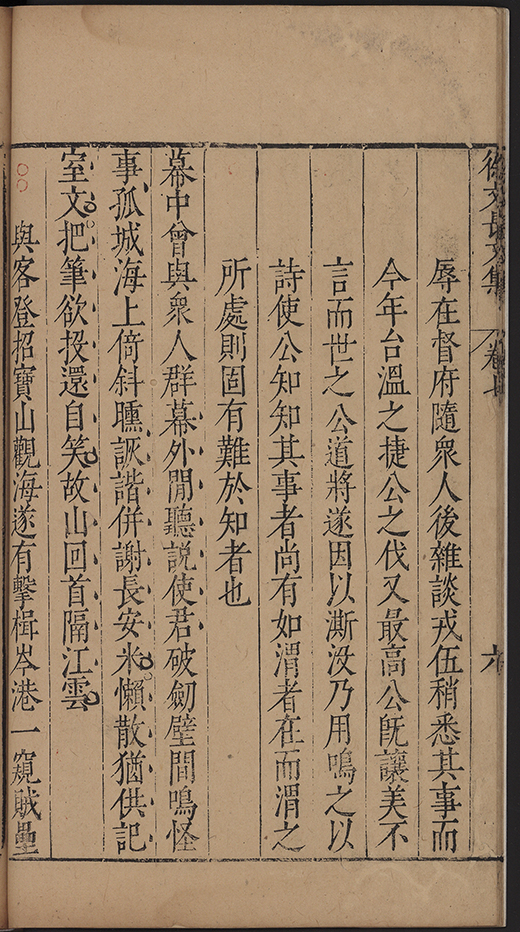 徐文長文集 卷七 六
辱在督府隨衆人後雜談戎伍稍悉其事而
今年台溫之捷公之伐又最高公旣讓美不
言而世之公道將遂因以澌没乃用鳴之以
詩使公知知其事者尚有如渭者在而渭之
所處則固有難於知者也
幕中曾與衆人群幕外閒聽説使君破劒壁間鳴怪
事孤城海上倚斜曛詼諧併謝長安米懶散猶供記
室文把筆欲投還自笑故山回首隔江雲
與客登招寶山觀海遂有擊楫岑港一窺賊壘